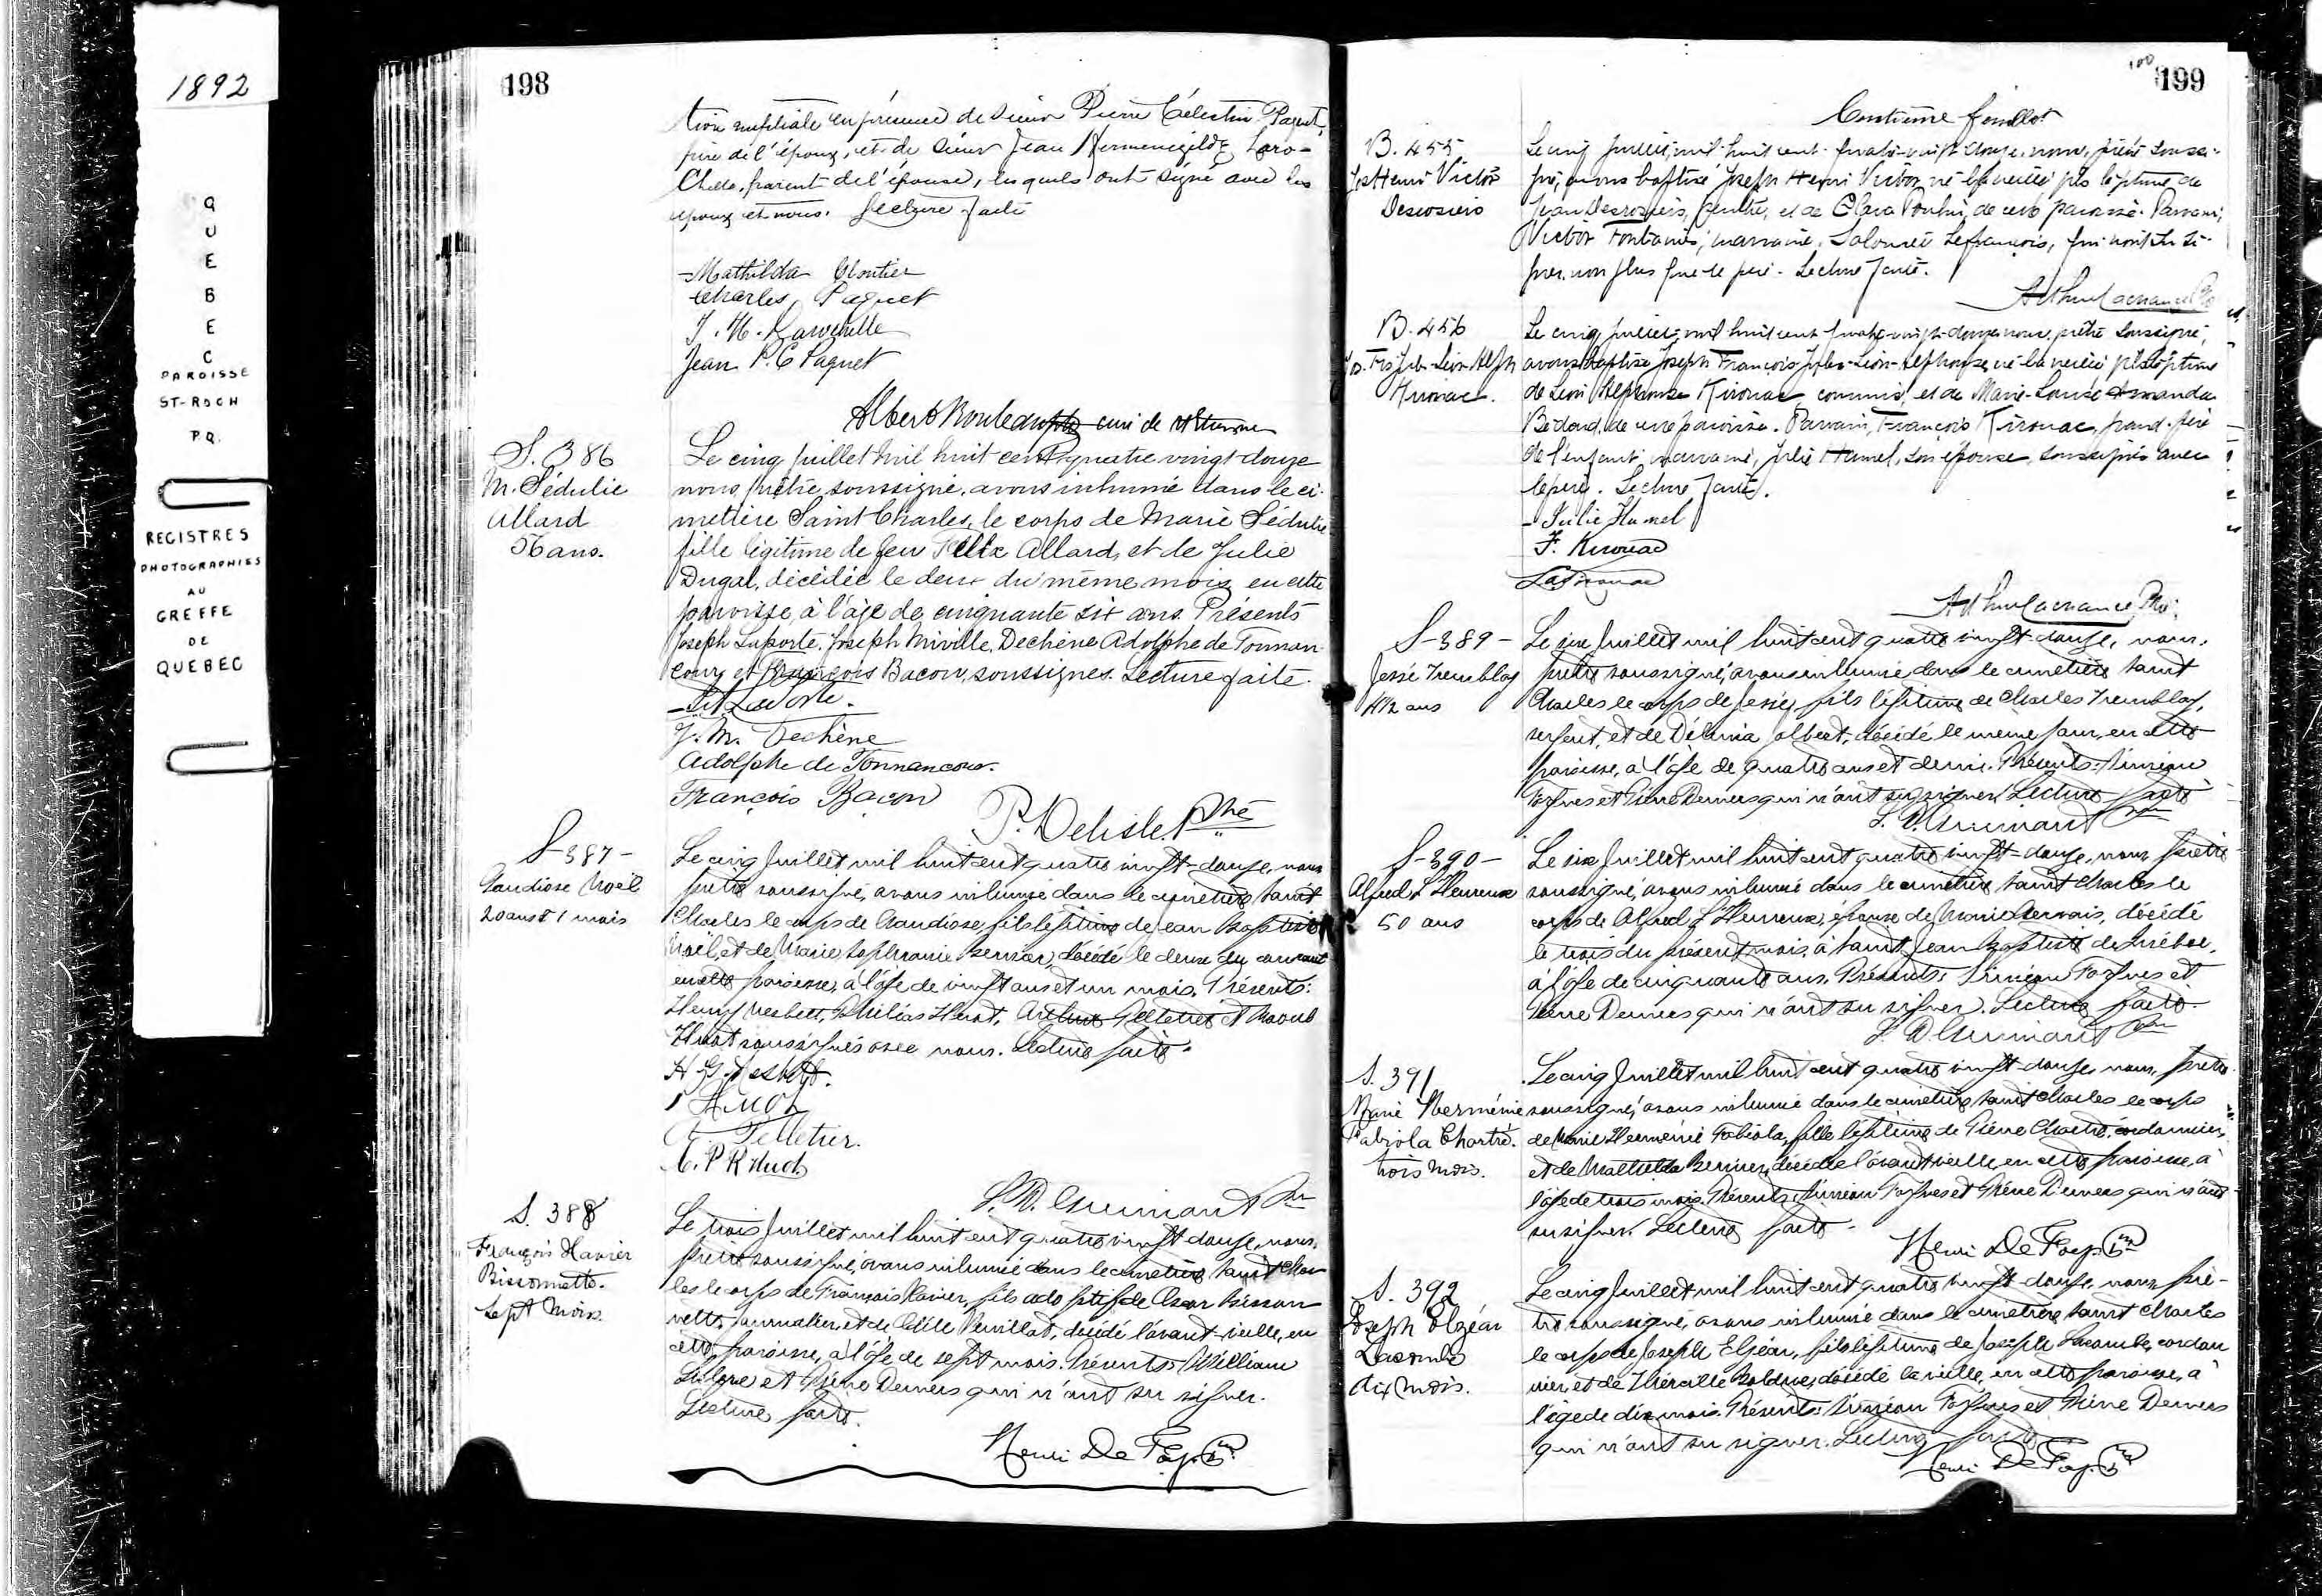 1892
QUEBEC
PAROISSE
ST-ROCH
P.Q.
REGISTRES
PHOTOGRAPHIES
AU
GREFFE
DE
QUEBEC
198
tion nuptiale en présence de Sieur Pierre Célestin Paquet,
père de l'époux, et de Sieur Jean Hermenigilde Laro-
chelle, parent de l'épouse, lesquels ont signé avec les
époux et nous. Lecture faite
Mathilda Cloutier
Charles Paquet
J. H. Larochelle
Jean P. C Paquet
Albert Rouleau ptre curé de
S. 386
M. Sédulie
Allard
56 ans.
Le cinq juillet mil huit cent quatre vingt-douze
nous prêtre soussigné, avons inhumé dans le ci-
metière Saint Charles, le corps de Marie Sédulie
fille légitime de feu Félix Allard, et de Julie
Dugal, décédée le deux du même mois en cette
paroisse, à l'âge de cinquante six ans. Présents
Joseph Laporte, Joseph Miville Dechène Adolphe de Tonnan-
cour et François Bacon, soussignés. Lecture faite.
Laporte.
J. M. Dechène
Adolphe de Tonnancour.
François Bacon
P. Delisle Ptre
S-387-
Gaudiose Noël
20 ans & 1 mois
Le cinq Juillet mil huit cent quatre vingt-douze, nous
prêtre soussigné, avons inhumé dans le cimetière Saint
Charles le corps de Gaudiose, fils légitime de Jean Baptiste
Noël, et de Marie Sophronie Bernier, décédé le deux du courant
en cette paroisse, à l'âge de vingt ans et un mois. Présents:
Henry Nesbett, Philéas Huot, Arthur Pelletier et Raoul
Huot soussignés avec nous. Lecture faite.
H. G. Nesbett.
P Huot
A. Pelletier.
P R Huot
S. 388
François Xavier
Bissonnette.
Sept mois.
Le trois Juillet mil huit cent quatre vingt douze, nous,
prêtre soussigné, avons inhumé dans le cimetière Saint Char
les le corps de François Xavier, fils adoptif de Oscar Bisson
nette, journalier, et de Odile décédé l'avant-veille, en
cette paroisse, à l'âge de sept mois. Présents: William
et Pierre Demers qui n'ont su signer.
Lecture faite.
Henri De Ptre
199
100
Centième feuillet
B. 455
Jos Henri Victor
Desrosiers
Le cinq juillet, mil huit cent quatre-vingt-douze, nous, prêtre soussi-
gné, avons baptisé Joseph Henri Victor, né la veille fils légitime de
Jean Desrosiers, et de Clara de cette paroisse. Parrain,
Victor Fontaine, marraine, Salomée Lefrançois, qui n'ont su si-
gner, non plus que le père. Lecture faite.
Arthur Lachance Ptre
B. 456
Jos. Frs Jules-Léon-Alph
Kirouac.
Le cinq juillet, mil huit cent quatre-vingt-douze nous, prêtre soussigné,
avons baptisé Joseph François Jules-Léon-Alphonse, né la veille fils légitime
de Léon Alphonse Kirouac, commis, et de Marie-Louise Amanda
Bédard, de cette paroisse. Parrain, François Kirouac, grand-père
de l'enfant marraine, Julie Hamel, son épouse, soussignés avec
le père. Lecture faite.
Julie Hamel
F. Kirouac
L. A. Kirouac
Arthur Lachance Ptre.
S-389-
Jessé Tremblay
4 1/2 ans
Le six Juillet mil huit cent quatre vingt-douze, nous,
prêtre soussigné, avons inhumé dans le cimetière Saint
Charles le corps de Jessé, fils légitime de Charles Tremblay,
sergent, et de Délima Jolbert, décédé le même jour, en cette
paroisse, à l'âge de quatre ans et demi. Présents: Siméon
Forgues et Pierre Demers qui n'ont su signer. Lecture faite
S-390-
Alfred L'Heureux
50 ans
Le six Juillet mil huit cent quatre vingt-douze, nous prêtre
soussigné, avons inhumé dans le cimetière Saint Charles le
corps de Alfred L'Heureux, époux de Marie Gervais, décédé
le trois du présent mois, à Saint Jean Baptiste de Québec,
à l'âge de cinquante ans. Présents: Siméon Forgues et
Pierre Demers qui n'ont su signer. Lecture faite.
S. 391
Marie Herménie
Fabiola Chartré.
trois mois.
Le cinq Juillet mil huit cent quatre vingt-douze, nous, prêtre
soussigné, avons inhumé dans le cimetière Saint Charles le corps
de Marie Herménie Fabiola, fille légitime de Pierre Chartré, cordonnier,
et de Mathilda Bernier, décédée l'avant veille, en cette paroisse, à
l'âge de trois mois. Présents: Siméon Forgues et Pierre Demers qui n'ont
su signer. Lecture faite.
Henri De Ptre
S. 392
Joseph Elzéar
Lacombe
dix mois.
Le cinq Juillet mil huit cent quatre vingt-douze, nous prê-
tre soussigné, avons inhumé dans le cimetière Saint Charles
le corps de Joseph Elzéar, fils légitime de Joseph Lacombe, cordon
nier, et de Bolduc, décédé la veille, en cette paroisse, à
l'âge de dix mois. Présents: Siméon Forgues et Pierre Demers
qui n'ont su signer. Lecture faite.
Henri De Ptre